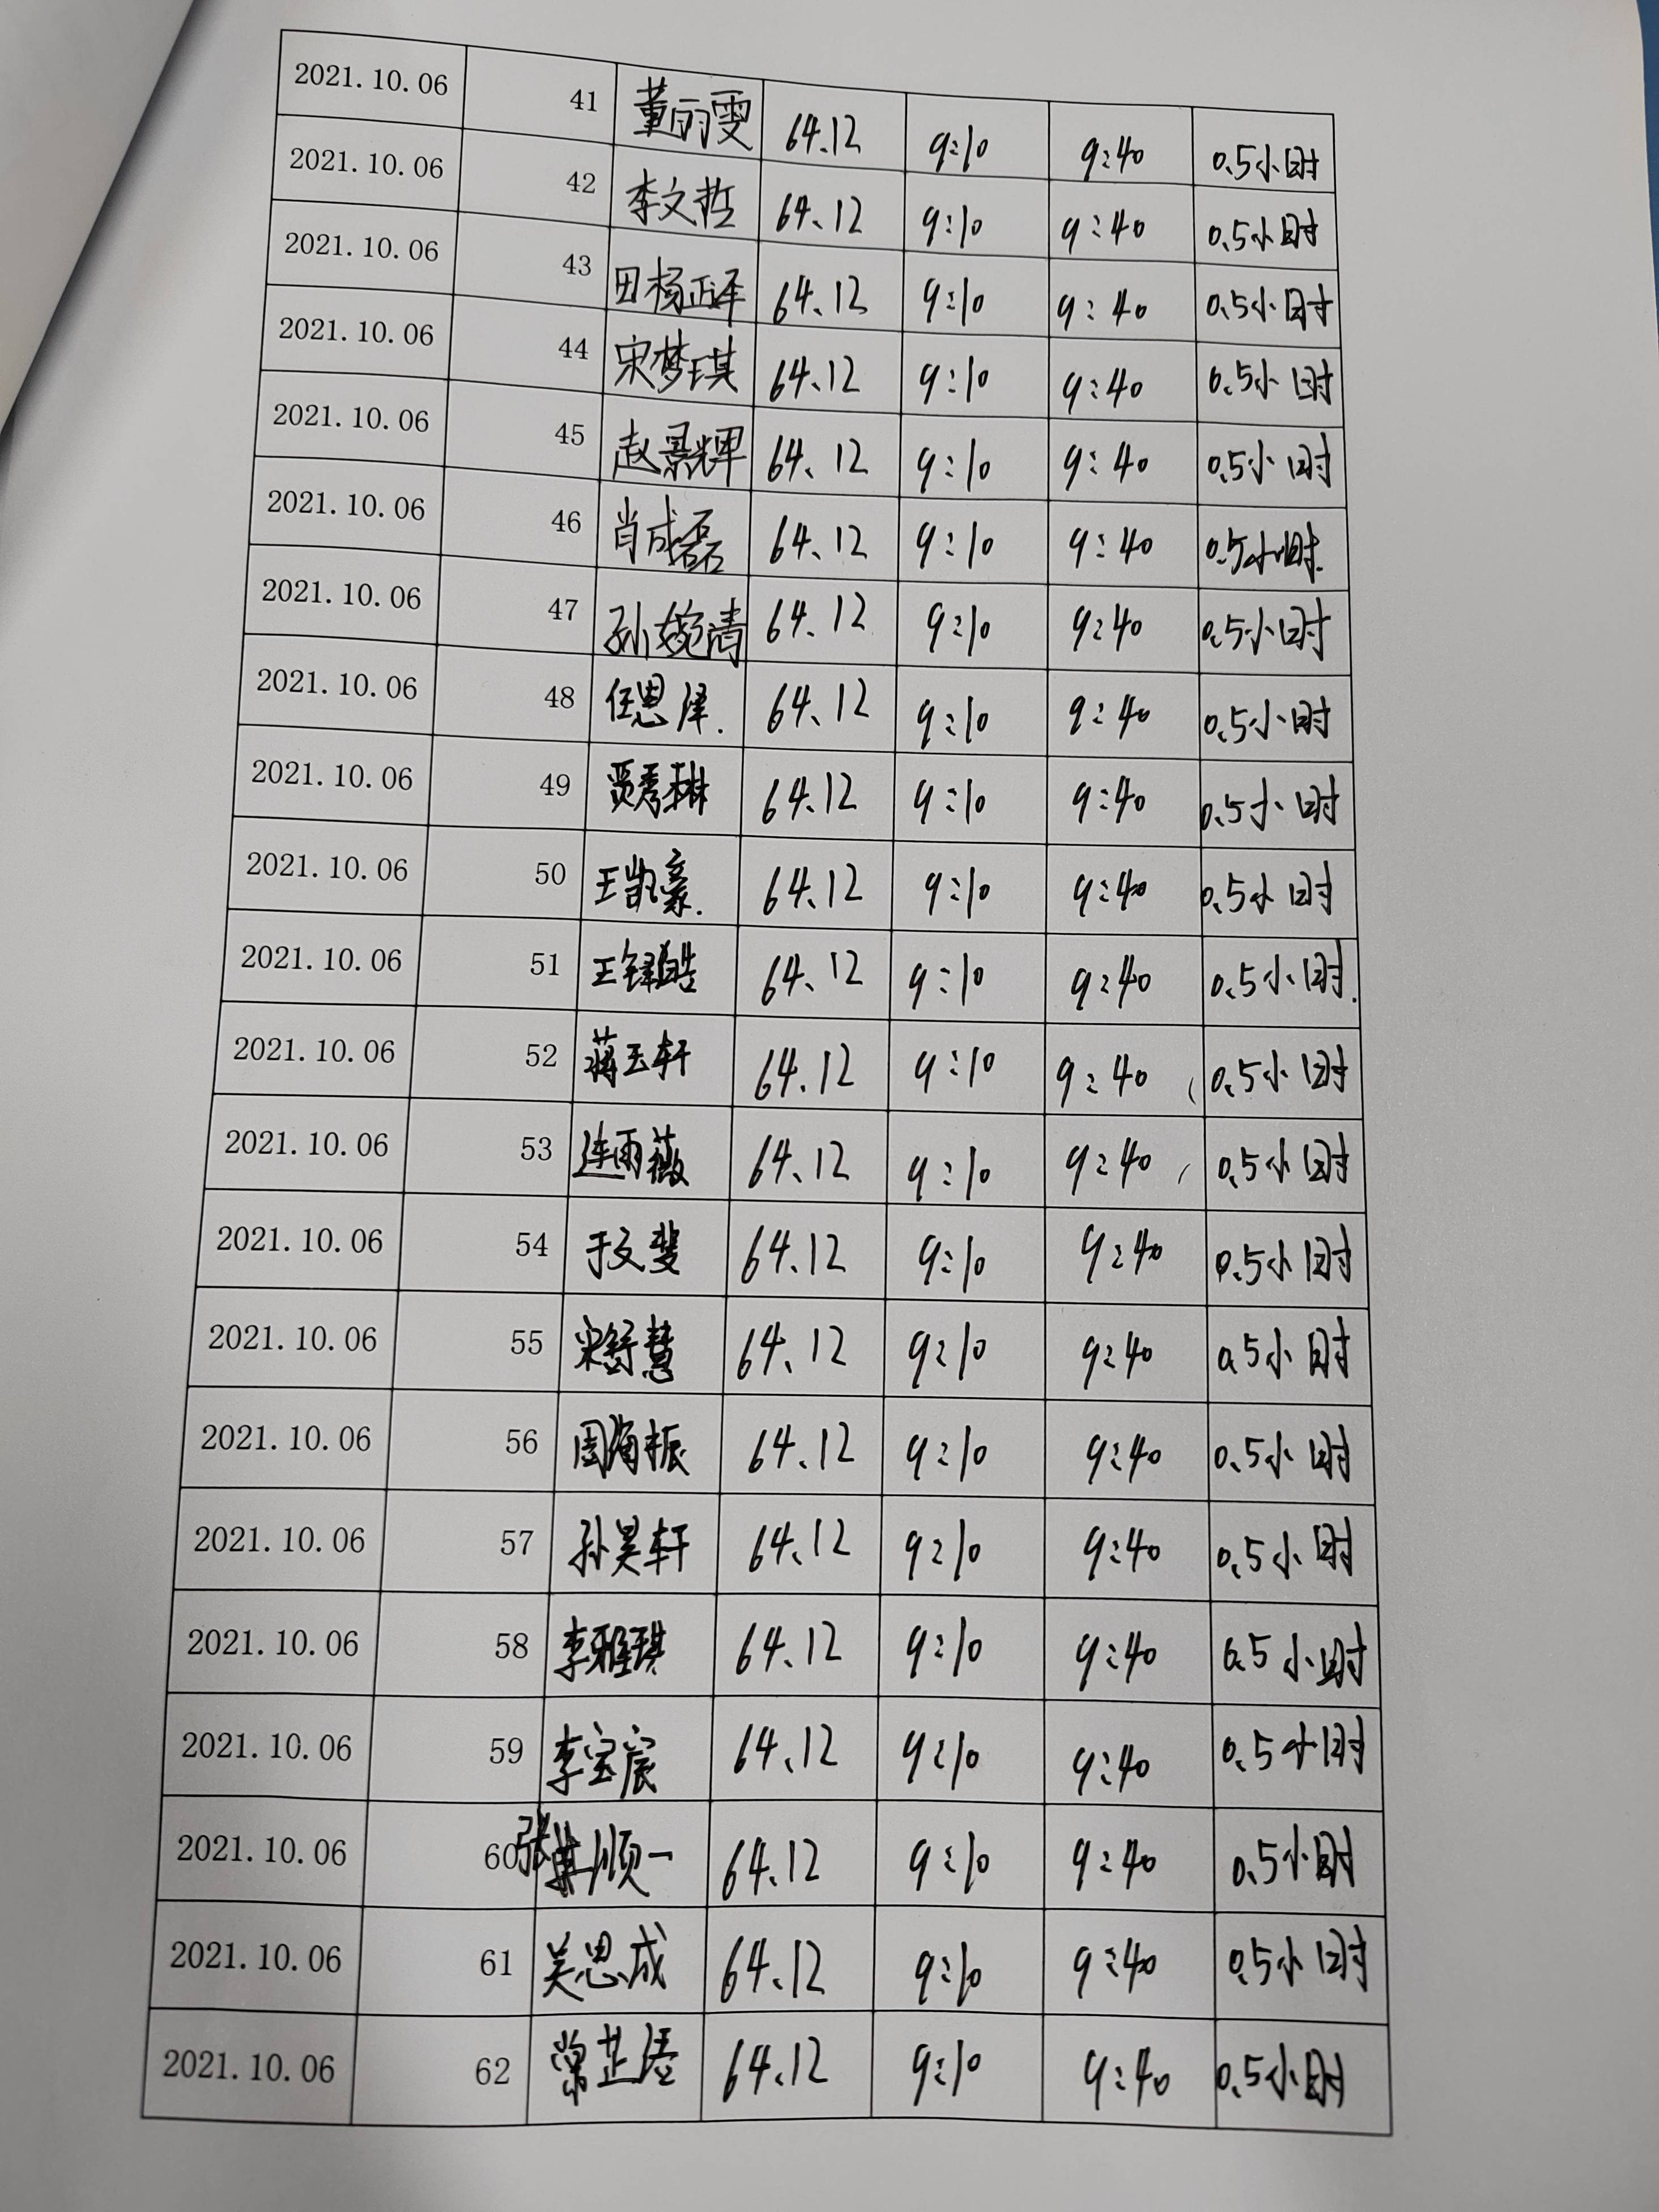 2021.10.06 41 董雨雯 64.12 9:10 9:40 0.5小时
2021.10.06 42 李文哲 64.12 9:10 9:40 0.5小时
2021.10.06 43 田杨正泽 64.12 9:10 9:40 0.5小时
2021.10.06 44 宋梦琪 64.12 9:10 9:40 0.5小时
2021.10.06 45 赵景辉 64.12 9:10 9:40 0.5小时
2021.10.06 46 肖成磊 64.12 9:10 9:40 0.5小时
2021.10.06 47 孙婉清 64.12 9:10 9:40 0.5小时
2021.10.06 48 任思泽 64.12 9:10 9:40 0.5小时
2021.10.06 49 贾秀琳 64.12 9:10 9:40 0.5小时
2021.10.06 50 王凯豪 64.12 9:10 9:40 0.5小时
2021.10.06 51 64.12 9:10 9:40 0.5小时
2021.10.06 52 蒋玉轩 64.12 9:10 9:40 0.5小时
2021.10.06 53 连雨薇 64.12 9:10 9:40 0.5小时
2021.10.06 54 于文斐 64.12 9:10 9:40 0.5小时
2021.10.06 55 宋舒慧 64.12 9:10 9:40 0.5小时
2021.10.06 56 周海振 64.12 9:10 9:40 0.5小时
2021.10.06 57 孙昊轩 64.12 9:10 9:40 0.5小时
2021.10.06 58 李雅琪 64.12 9:10 9:40 0.5小时
2021.10.06 59 李宝宸 64.12 9:10 9:40 0.5小时
2021.10.06 60 64.12 9:10 9:40 0.5小时
2021.10.06 61 吴思成 64.12 9:10 9:40 0.5小时
2021.10.06 62 64.12 9:10 9:40 0.5小时